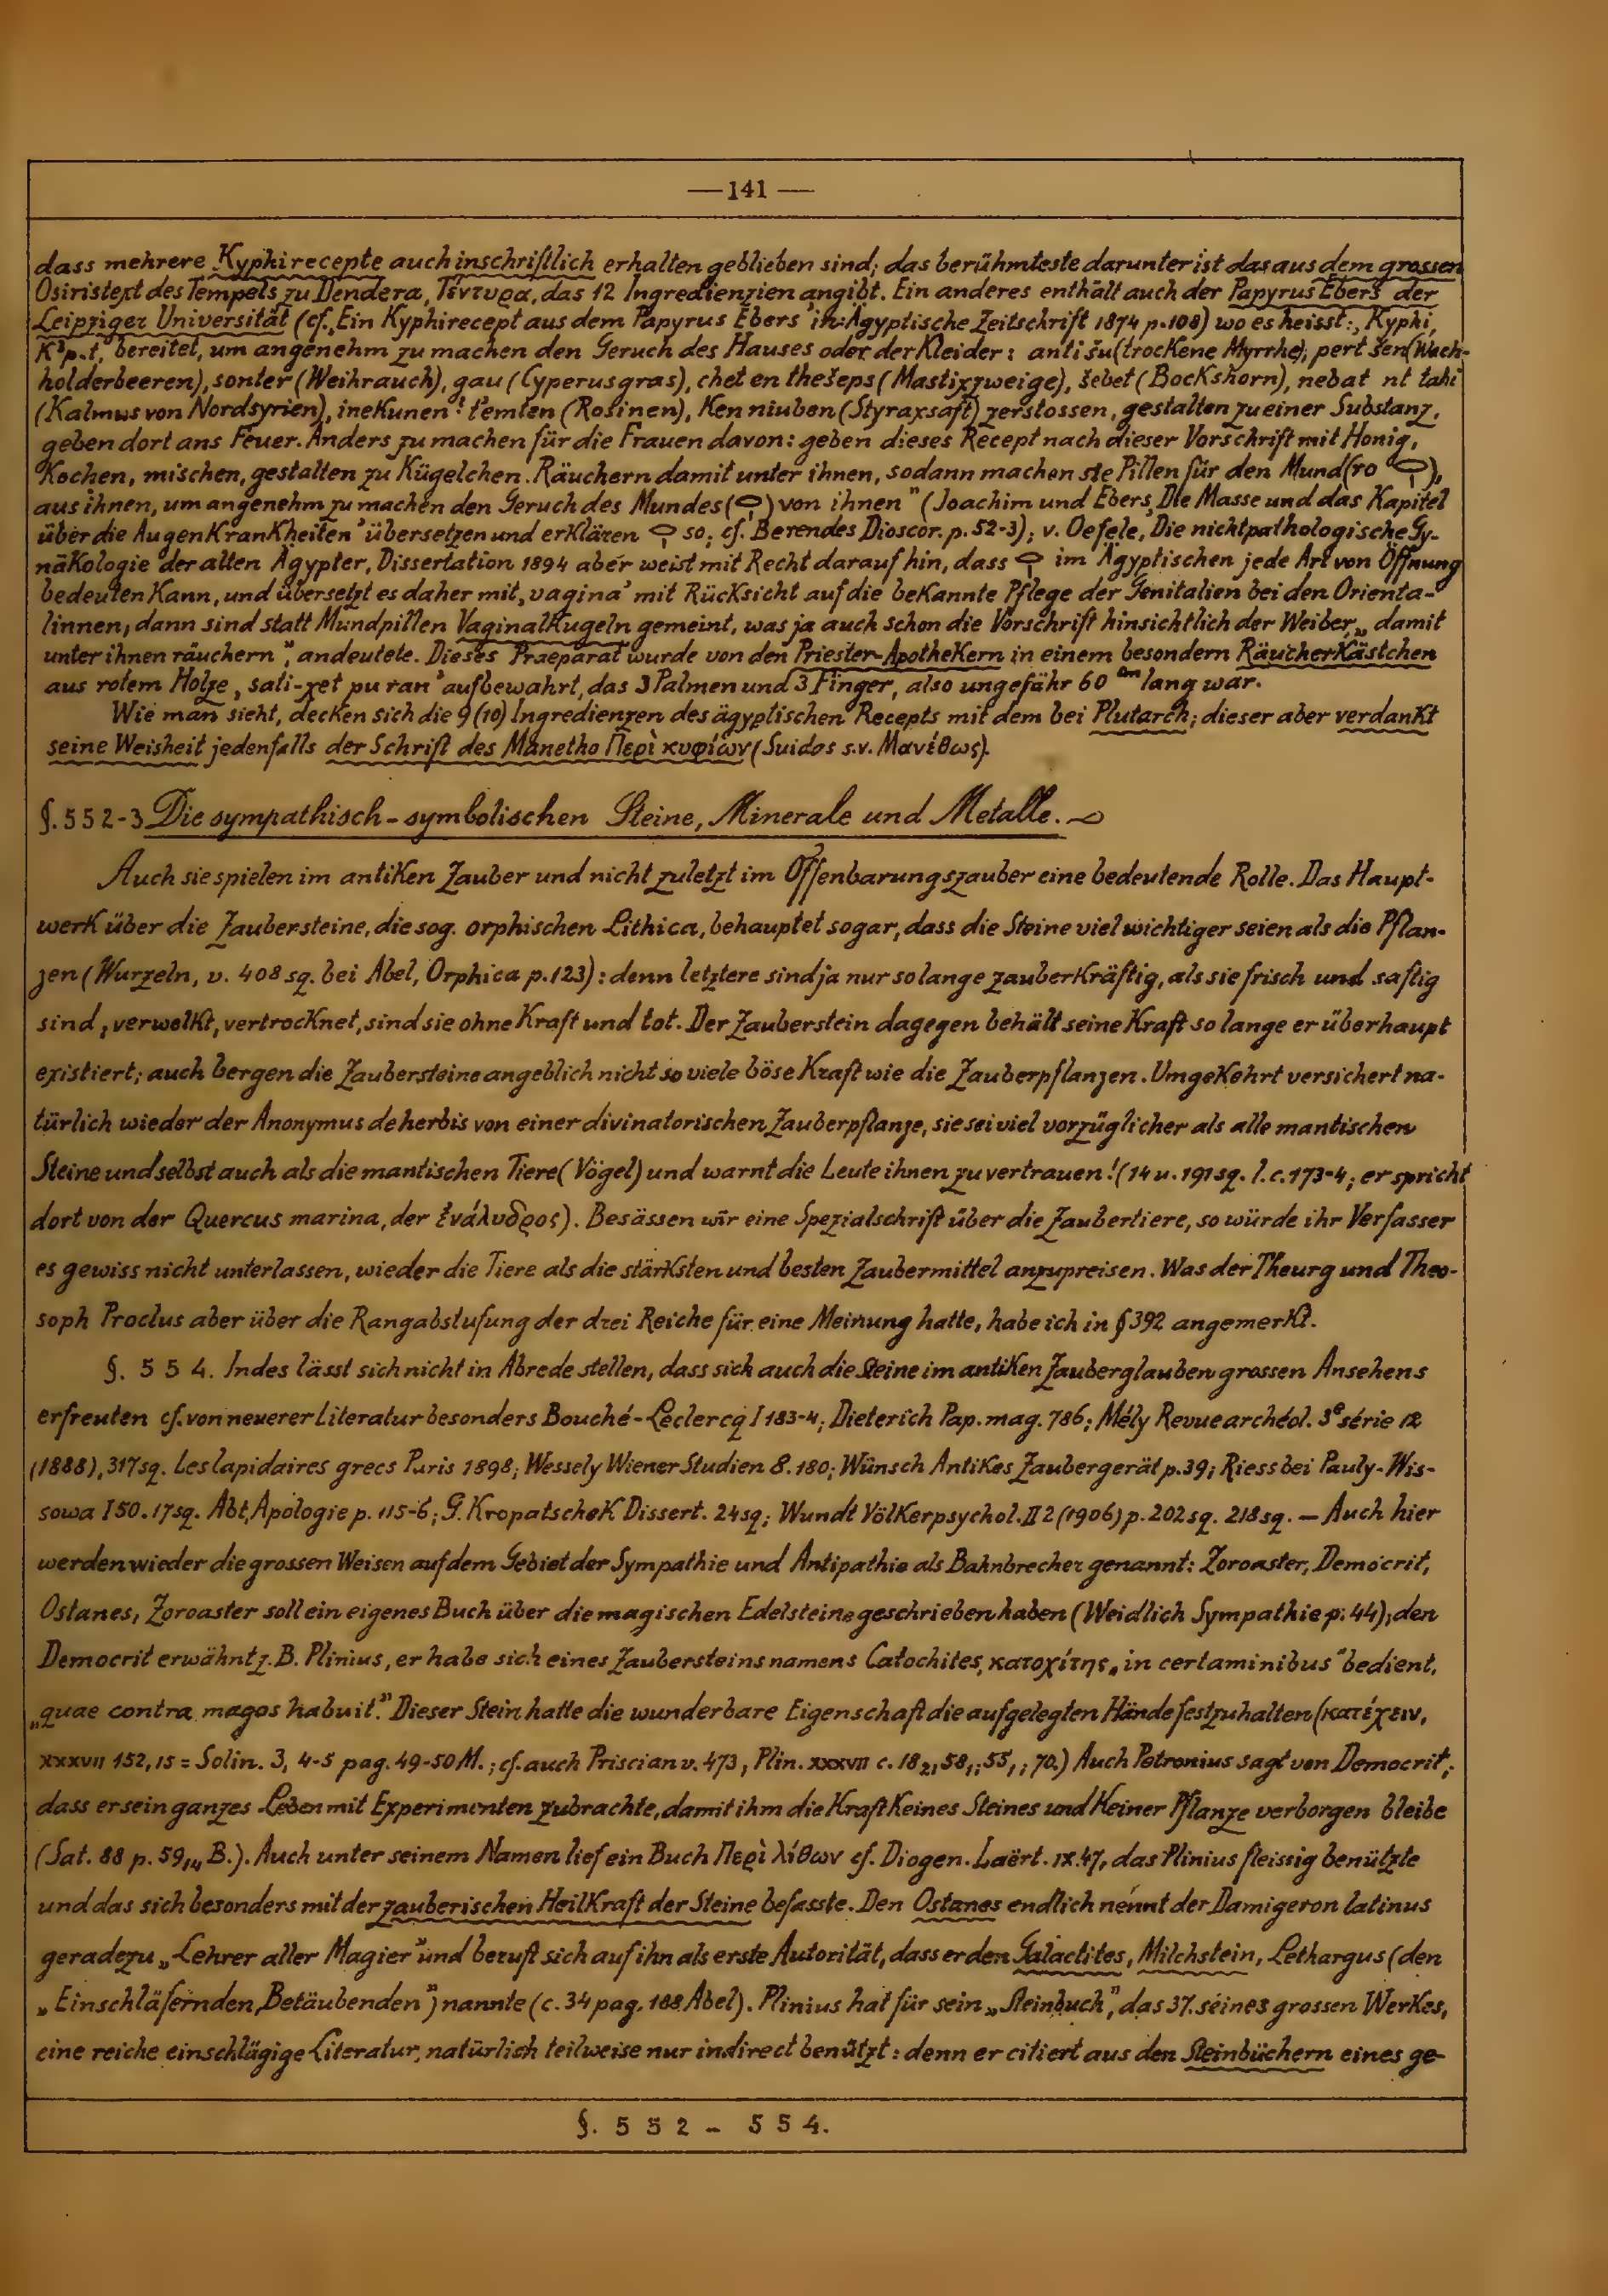 — 141 —
dass mehrere Kyphirecepte auch inschriftlich erhalten geblieben sind; das berühmteste darunter ist das aus dem grossen
Osiristext des Tempels zu Dendera, Τέντυρα, das 12 Ingredienzien angibt. Ein anderes enthält auch der Papyrus Ebers der
Leipziger Universität (cf. „Ein Kyphirecept aus dem Papyrus Ebers" in: Ägyptische Zeitschrift 1874 p. 108) wo es heisst: „Kyphi,
bereitet, um angenehm zu machen den Geruch des Hauses oder der Kleider: anti šu (trockene Myrrhe), pert šen (Wach-
holderbeeren), sonter (Weihrauch), gau (Cyperusgras), chet en thešeps (Mastixzweige), šebet (Bockshorn), nebat nt tahi
(Kalmus von Nordsyrien), inekunen temten (Rosinen), Ken niuben (Styraxsaft) zerstossen, gestalten zu einer Substanz,
geben dort ans Feuer. Anders zu machen für die Frauen davon: geben dieses Recept nach dieser Vorschrift mit Honig,
Kochen, mischen, gestalten zu Kügelchen. Räuchern damit unter ihnen, sodann machen sie Pillen für den Mund (ro),
aus ihnen, um angenehm zu machen den Geruch des Mundes () von ihnen" (Joachim und Ebers, Die Masse und das Kapitel
über die Augenkrankheiten' übersetzen und erklären so; cf. Berendes Dioscor. p. 52-3); v. Oefele, Die nichtpathologische Gy-
näkologie der alten Ägypter, Dissertation 1894 aber weist mit Recht darauf hin, dass im Ägyptischen jede Art von Öffnung
bedeuten kann, und übersetzt es daher mit ‚vagina' mit Rücksicht auf die bekannte Pflege der Genitalien bei den Orienta-
linnen; dann sind statt Mundpillen Vaginalkugeln gemeint, was ja auch schon die Vorschrift hinsichtlich der Weiber, „damit
unter ihnen räuchern", andeutete. Dieses Praeparat wurde von den Priester-Apothekern in einem besondern Räucherkästchen
aus rotem Holze, sati-xet pu ran' aufbewahrt, das 3 Palmen und 3 Finger, also ungefähr 60 cm lang war.
Wie man sieht, decken sich die 9 (10) Ingredienzen des ägyptischen Recepts mit dem bei Plutarch; dieser aber verdankt
seine Weisheit jedenfalls der Schrift des Manetho Περὶ κυφίων (Suidas s.v. Μανέθως).
§. 552-3 Die sympathisch-symbolischen Steine, Minerale und Metalle.
Auch sie spielen im antiken Zauber und nicht zuletzt im Offenbarungszauber eine bedeutende Rolle. Das Haupt-
werk über die Zaubersteine, die sog. orphischen Lithica, behauptet sogar, dass die Steine viel wichtiger seien als die Pflan-
zen (Wurzeln, v. 408 sq. bei Abel, Orphica p. 123): denn letztere sind ja nur so lange zauberkräftig, als sie frisch und saftig
sind; verwelkt, vertrocknet, sind sie ohne Kraft und tot. Der Zauberstein dagegen behält seine Kraft so lange er überhaupt
existiert; auch bergen die Zaubersteine angeblich nicht so viele böse Kraft wie die Zauberpflanzen. Umgekehrt versichert na-
türlich wieder der Anonymus de herbis von einer divinatorischen Zauberpflanze, sie sei viel vorzüglicher als alle mantischen
Steine und selbst auch als die mantischen Tiere (Vögel) und warnt die Leute ihnen zu vertrauen! (14 u. 191 sq. l. c. 173-4; er spricht
dort von der Quercus marina, der ἐνάλυδρος). Besässen wir eine Spezialschrift über die Zaubertiere, so würde ihr Verfasser
es gewiss nicht unterlassen, wieder die Tiere als die stärksten und besten Zaubermittel anzupreisen. Was der Theurg und Theo-
soph Proclus aber über die Rangabstufung der drei Reiche für eine Meinung hatte, habe ich in § 392 angemerkt.
§. 554. Indes lässt sich nicht in Abrede stellen, dass sich auch die Steine im antiken Zauberglauben grossen Ansehens
erfreuten cf. von neuerer Literatur besonders Bouché-Leclercq I 183-4; Dieterich Pap. mag. 786; Mély Revue archéol. 3e série 12
(1888), 317 sq. Les lapidaires grecs Paris 1898; Wessely Wiener Studien 8. 180; Wünsch Antikes Zaubergerät p. 39; Riess bei Pauly-Wis-
sowa I 50. 17 sq. Abt, Apologie p. 115-6; G. Kropatschek Dissert. 24 sq; Wundt Völkerpsychol. II 2 (1906) p. 202 sq. 218 sq. — Auch hier
werden wieder die grossen Weisen auf dem Gebiet der Sympathie und Antipathie als Bahnbrecher genannt: Zoroaster, Democrit,
Ostanes, Zoroaster soll ein eigenes Buch über die magischen Edelsteine geschrieben haben (Weidlich Sympathie p. 44); den
Democrit erwähnt z. B. Plinius, er habe sich eines Zaubersteins namens Catochites, κατοχίτης „in certaminibus" bedient,
„quae contra magos habuit." Dieser Stein hatte die wunderbare Eigenschaft die aufgelegten Hände festzuhalten (κατέχειν,
XXXVII 152, 15 = Solin. 3, 4-5 pag. 49-50 M.; cf. auch Priscian v. 473, Plin. XXXVII c. 18 70.) Auch Petronius sagt von Democrit,
dass er sein ganzes Leben mit Experimenten zubrachte, damit ihm die Kraft keines Steines und keiner Pflanze verborgen bleibe
(Sat. 88 p. 59,14 B.). Auch unter seinem Namen lief ein Buch Περὶ λίθων cf. Diogen. Laërt. IX. 47, das Plinius fleissig benützte
und das sich besonders mit der zauberischen Heilkraft der Steine befasste. Den Ostanes endlich nennt der Damigeron latinus
geradezu „Lehrer aller Magier" und beruft sich auf ihn als erste Autorität, dass er den Galactites, Milchstein, Lethargus (den
„Einschläfernden, Betäubenden") nannte (c. 34 pag. 188 Abel). Plinius hat für sein „Steinbuch", das 37. seines grossen Werkes,
eine reiche einschlägige Literatur, natürlich teilweise nur indirect benützt: denn er citiert aus den Steinbüchern eines ge-
§. 552 - 554.